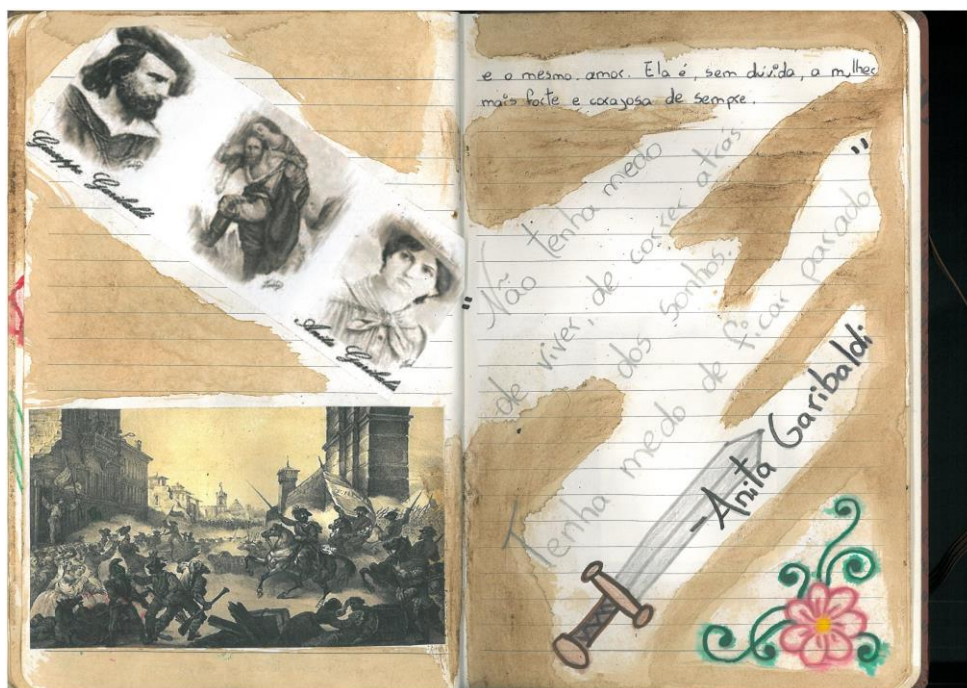 Giuseppe Garibaldi
Anita Garibaldi
e o mesmo amor. Ela é, sem dúvida, a mulher
mais forte e corajosa de sempre.
" Não tenha medo
de viver, de correr atrás
dos sonhos.
Tenha medo de ficar parado "
- Anita Garibaldi